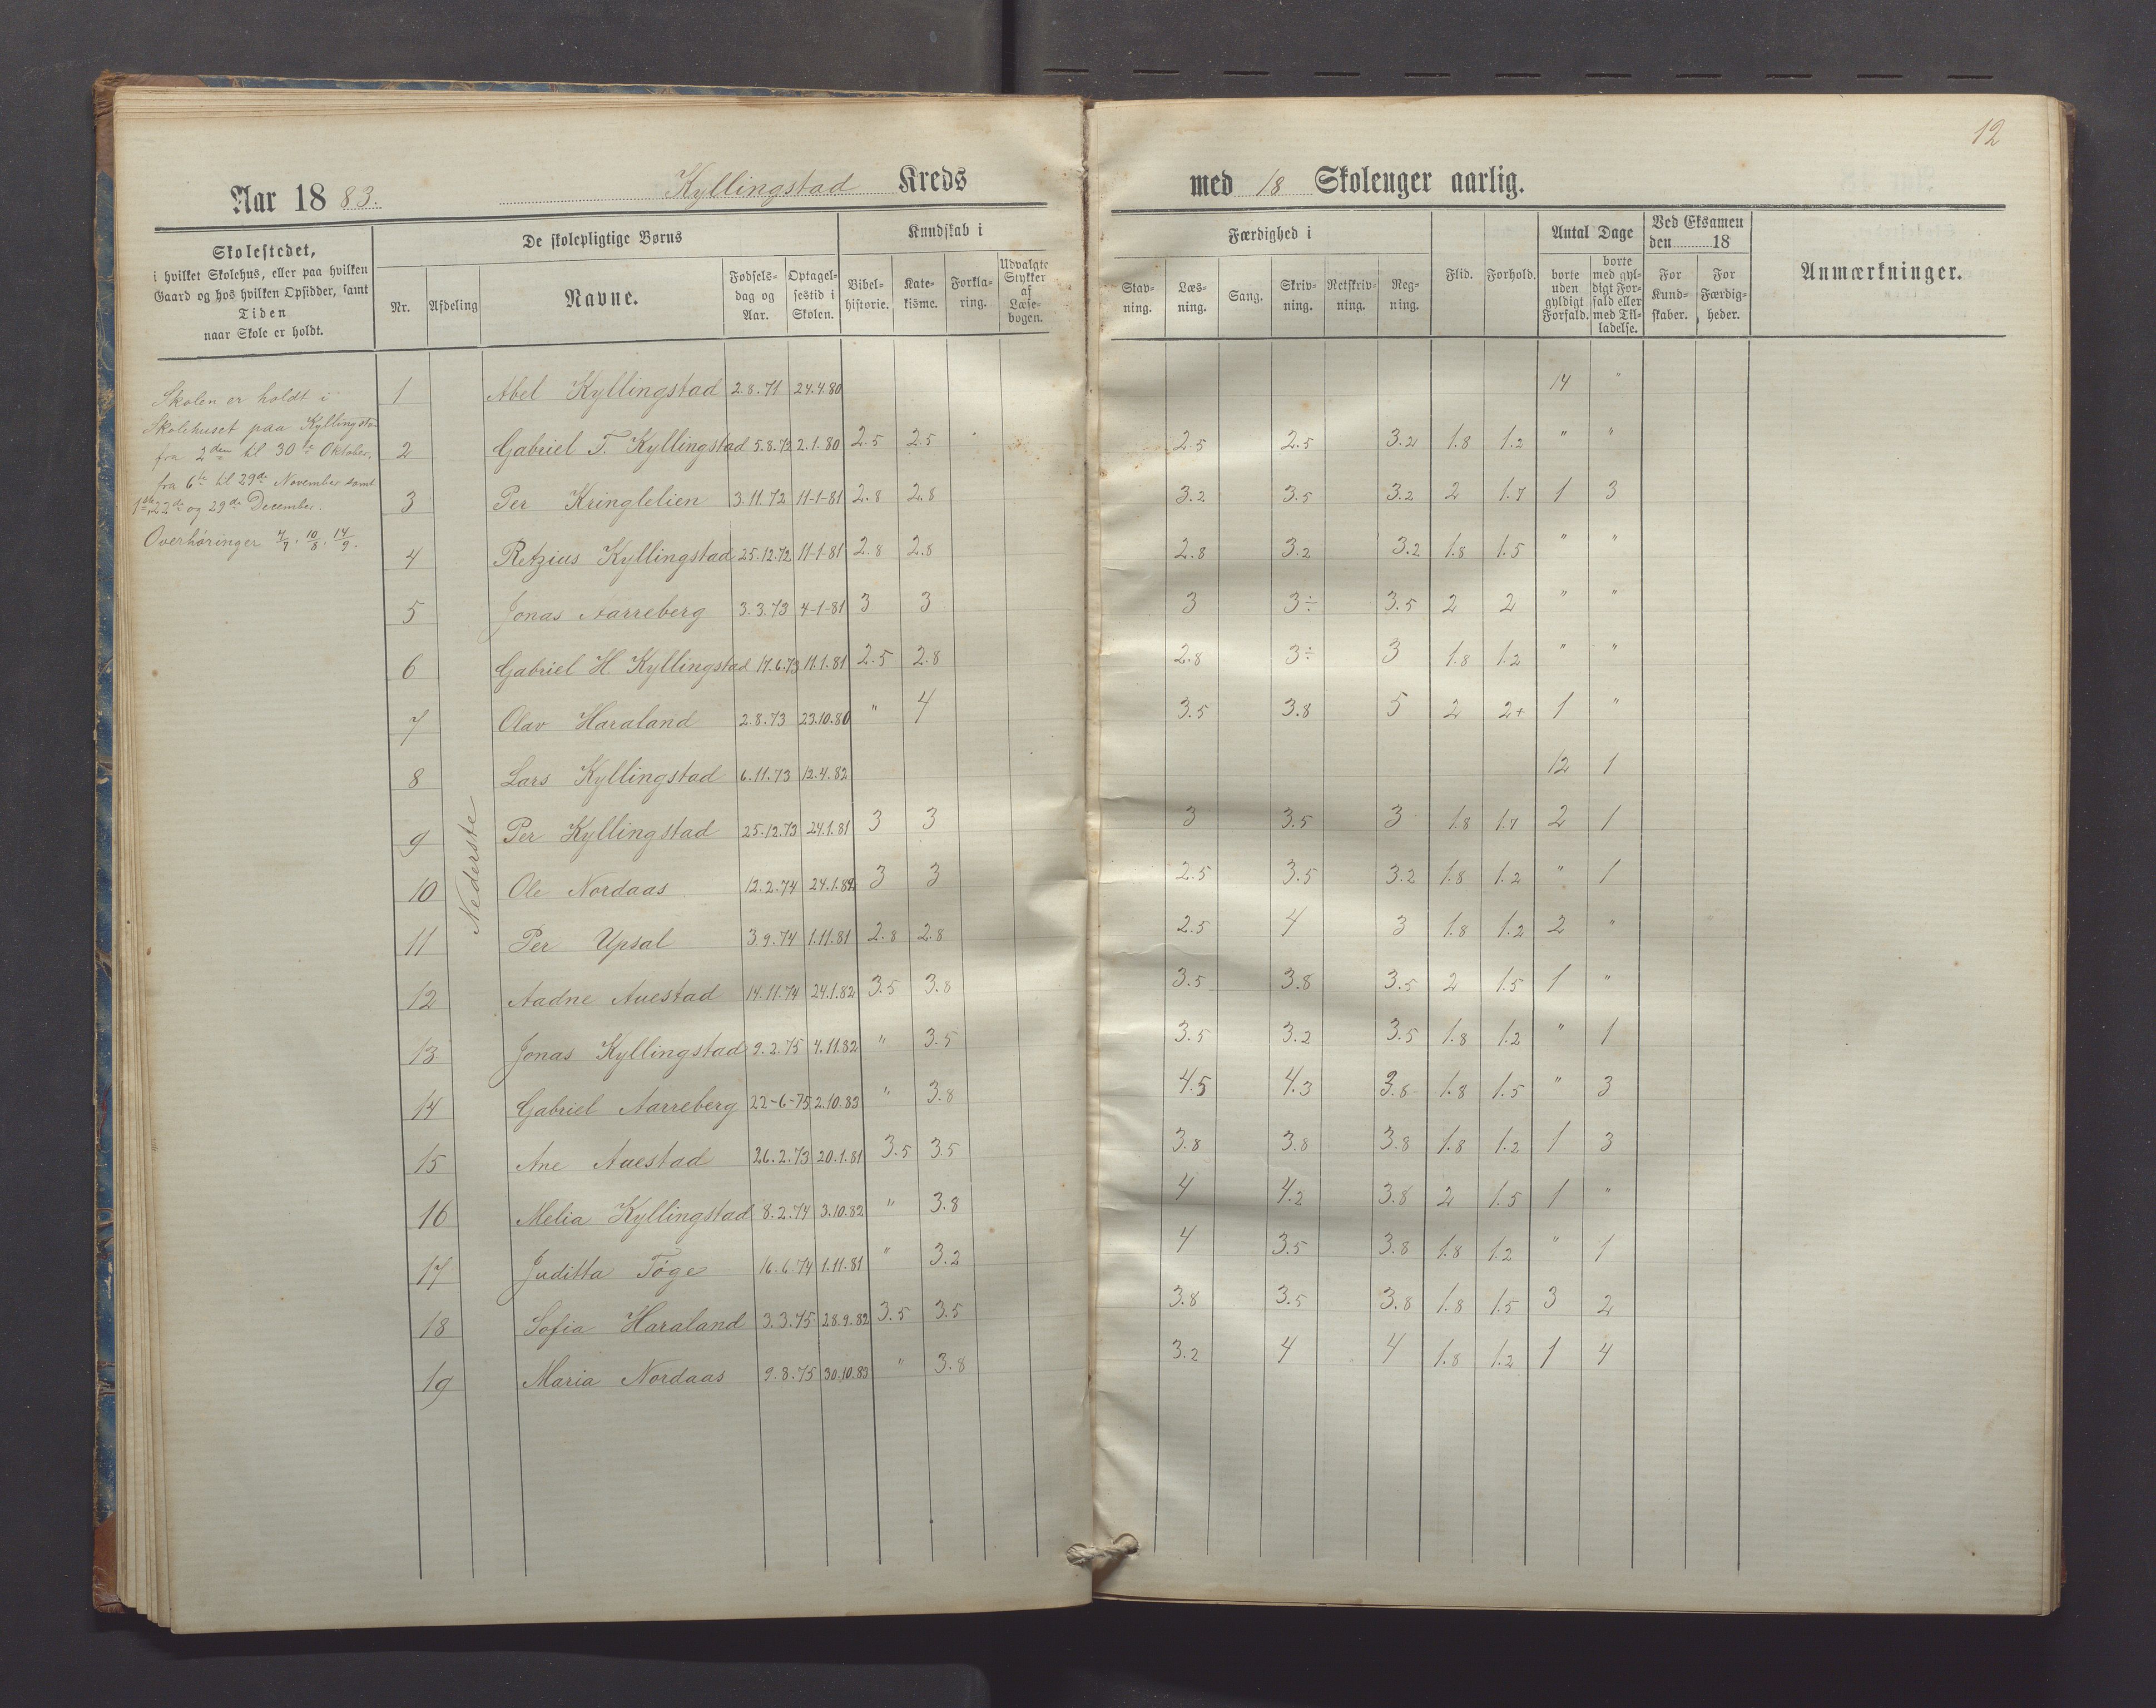 12
Aar 1883. Kyllingstad Kreds med 18 Skoleuger aarlig.
Skolestedet,
i hvilket Skolehus, eller paa hvilken
Gaard og hos hvilken Opsidder, samt
Tiden
naar Skole er holdt.
De skolepligtige Børns
Nr. Afdeling Navne. Fødsels-dag og Aar. Optagel-sestid i Skolen.
Kundskab i
Bibel-historie. Kate-kisme. Forkla-ring. Udvalgte Stykker af Læse-bogen.
Færdighed i
Stav-ning. Læs-ning. Sang. Skriv-ning. Retskriv-ning. Reg-ning.
Flid. Forhold.
Antal Dage
borte uden gyldigt Forfald. borte med gyl-digt For-fald eller med Til-ladelse.
Ved Eksamen
den 18
For Kund-skaber. For Færdig-heder.
Anmærkninger.
Skolen er holdt i
Skolehuset paa Kyllingstad
fra 2den til 30te Oktober,
fra 6te til 29de November samt
1ste, 22de og 29de December.
Overhøringer 4/7, 10/8, 14/9.
Nederste
1 Abel Kyllingstad 2.8.71 24.4.80 14 "
2 Gabriel T. Kyllingstad 5.8.72 2.1.80 2.5 2.5 2.5 2.5 3.2 1.8 1.2 " "
3 Per Kringlelien 3.11.72 11-1-81 2.8 2.8 3.2 3.5 3.2 2 1.7 1 3
4 Retzius Kyllingstad 25.12.72 11-1-81 2.8 2.8 2.8 3.2 3.2 1.8 1.5 " "
5 Jonas Aarreberg 3.3.73 4-1-81 3 3 3 3÷ 3.5 2 2 " "
6 Gabriel H. Kyllingstad 17.6.73 11.1.81 2.5 2.8 2.8 3÷ 3 1.8 1.2 " "
7 Olav Haraland 2.8.73 23.10.80 " 4 3.5 3.8 5 2 2+ 1 "
8 Lars Kyllingstad 6.11.73 12.4.82 12 1
9 Per Kyllingstad 25.12.73 24.1.81 3 3 3 3.5 3 1.8 1.7 2 1
10 Ole Nordaas 12.2.74 24.1.82 3 3 2.5 3.5 3.2 1.8 1.2 " 1
11 Per Upsal 3.9.74 1.11.81 2.8 2.8 2.5 4 3 1.8 1.2 2 "
12 Aadne Auestad 14.11.74 24.1.82 3.5 3.8 3.5 3.8 3.5 2 1.5 1 "
13 Jonas Kyllingstad 9.2.75 4.11.82 " 3.5 3.5 3.2 3.5 1.8 1.2 " 1
14 Gabriel Aarreberg 22-6-75 2.10.83 " 3.8 4.5 4.3 3.8 1.8 1.5 " 3
15 Ane Auestad 26.2.73 20.1.81 3.5 3.5 3.8 3.8 3.8 1.8 1.2 1 3
16 Melia Kyllingstad 8.2.74 3.10.82 " 3.8 4 4.2 3.8 2 1.5 1 "
17 Juditta Töge 16.6.74 1.11.81 " 3.2 4 3.5 3.8 1.8 1.2 " 1
18 Sofia Haraland 3.3.75 28.9.82 3.5 3.5 3.8 3.5 3.8 1.8 1.5 3 2
19 Maria Nordaas 9.8.75 30.10.83 " 3.8 3.2 4 4 1.8 1.2 1 4